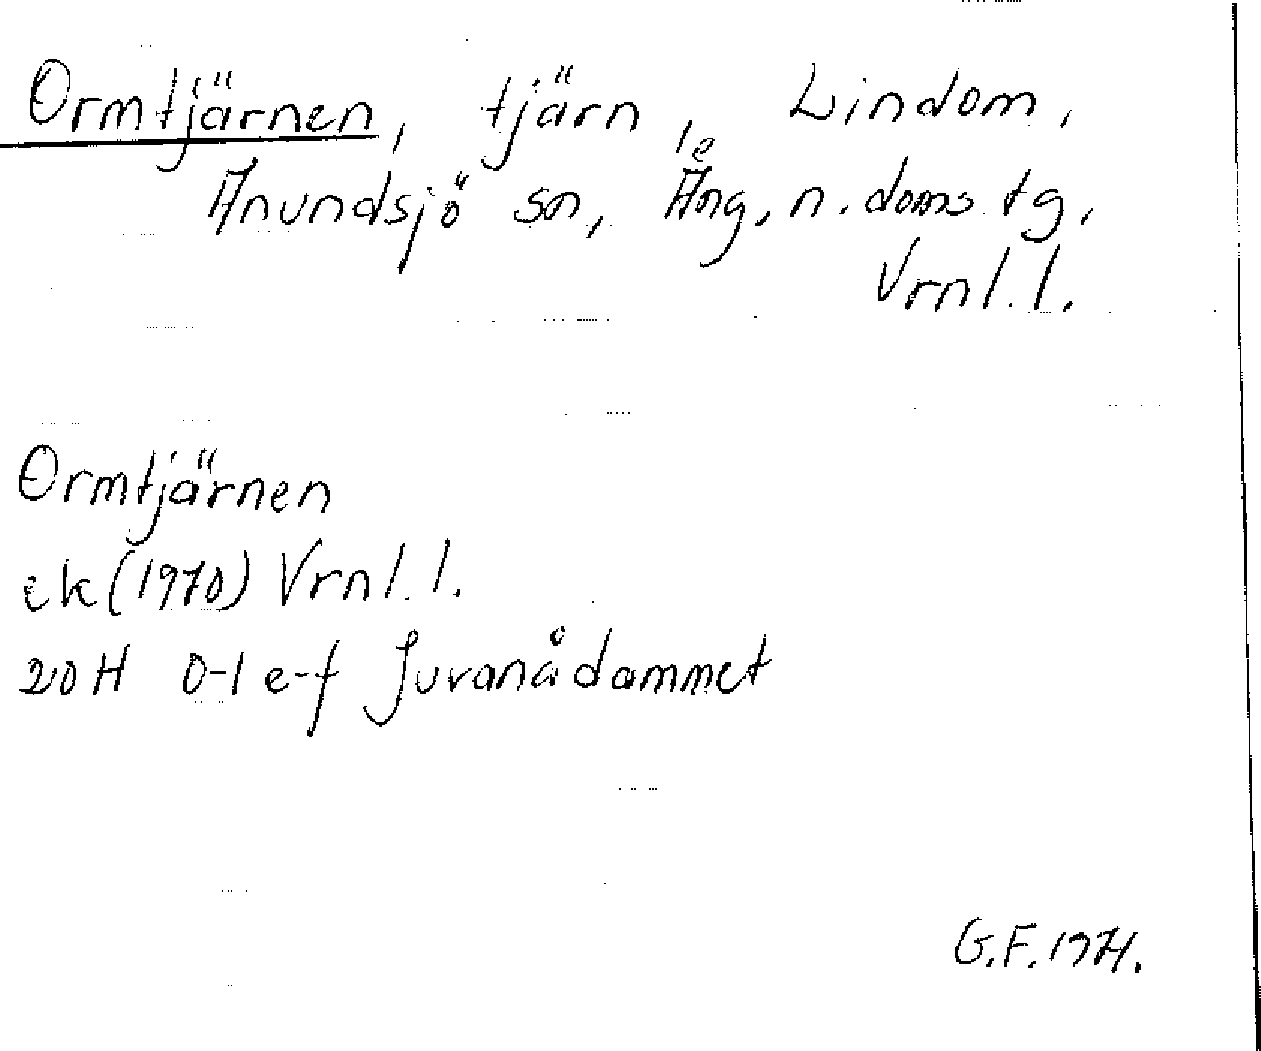 Ormtjärnen, tjärn, Lindom,
Anundsjö sn, Ång, n. doms tg,
Vrnl. l.
Ormtjärnen
ek (1970) Vrnl. l.
20H 0-1 e-f Juvanådammet
G.F. 1974.